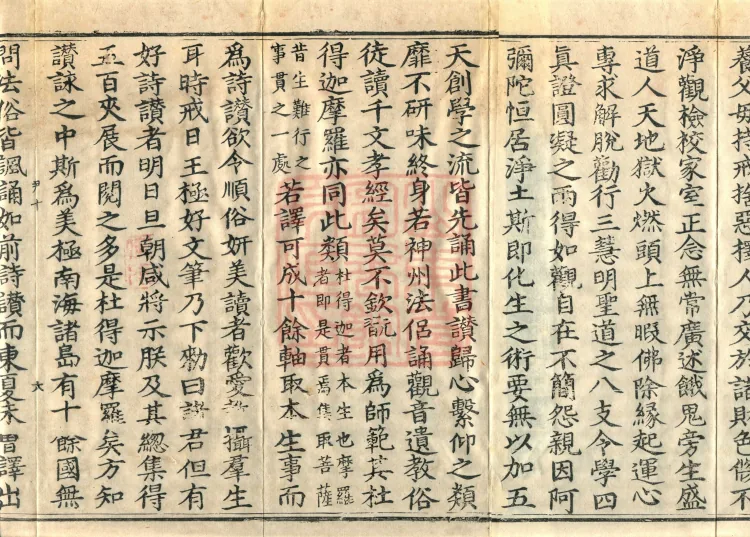 養父母持戒捨惡擇人乃交於諸財色修不
淨觀檢校家室正念無常廣述餓鬼旁生盛
道人天地獄火燃頭上無暇佛除緣起運心
專求解脫勸行三慧明聖道之八支令學四
眞證圓凝之兩得如觀自在不簡怨親因阿
彌陀恒居淨土斯即化生之術要無以加五
天創學之流皆先誦此書讚歸心繫仰之類
靡不研味終身若神州法侶誦觀音遺教俗
徒讀千文孝經矣莫不欽翫用爲師範其社
得迦摩羅亦同此類杜得迦者本生也摩羅
者即是貫焉集取菩薩
昔生難行之
事貫之一處若譯可成十餘軸取本生事而
爲詩讃欲令順俗妍美讀者歡愛教攝羣生
耳時戒日王極好文筆乃下勑曰諸君但有
好詩讃者明日旦朝咸將示朕及其緫集得
五百夾展而閱之多是杜得迦摩羅矣方知
讃詠之中斯爲美極南海諸島有十餘國無
尹十 六
問法俗皆諷誦如前詩讃而東夏未曾譯出